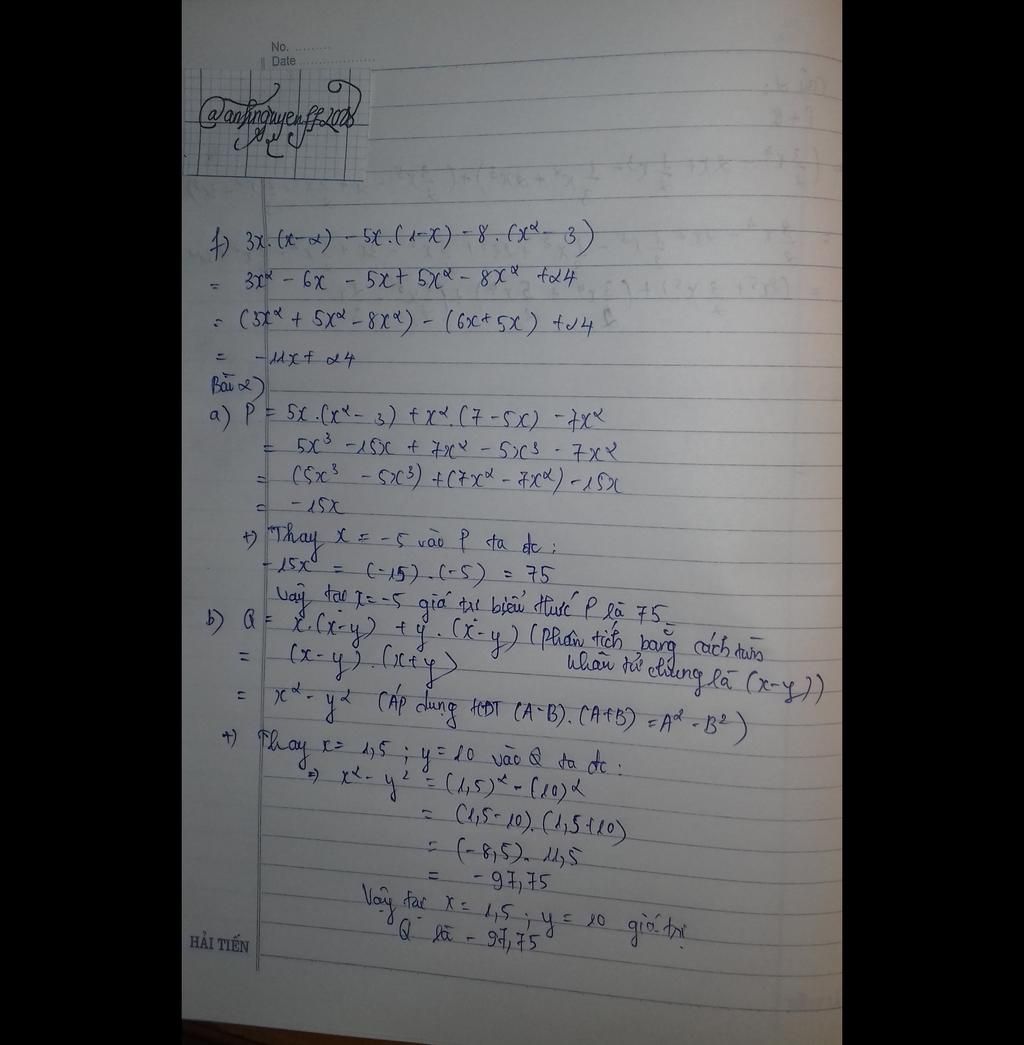 No. ........
Date ...................
@anhnguyenff2008
f) 3x.(x-2) - 5x.(1-x) - 8.(x² - 3)
= 3x² - 6x - 5x + 5x² - 8x² + 24
= (3x² + 5x² - 8x²) - (6x + 5x) + 24
= -11x + 24
Bài 2)
a) P = 5x.(x² - 3) + x².(7 - 5x) - 7x²
= 5x³ - 15x + 7x² - 5x³ - 7x²
= (5x³ - 5x³) + (7x² - 7x²) - 15x
= -15x
+) Thay x = -5 vào P ta đc :
-15x = (-15).(-5) = 75
Vậy tại x = -5 giá trị biểu thức P là 75.
b) Q = x.(x-y) + y.(x-y) (phân tích bằng cách
= (x-y).(x+y) nhân tử chung là (x-y))
= x² - y² (Áp dụng HĐT (A-B).(A+B) = A² - B²)
+) Thay x = 1,5 ; y = 10 vào Q ta đc :
=) x² - y² = (1,5)² - (10)²
= (1,5-10).(1,5+10)
= (-8,5). 11,5
= -97,75
Vậy tại x = 1,5 ; y = 10 giá trị
Q là - 97,75
HẢI TIẾN